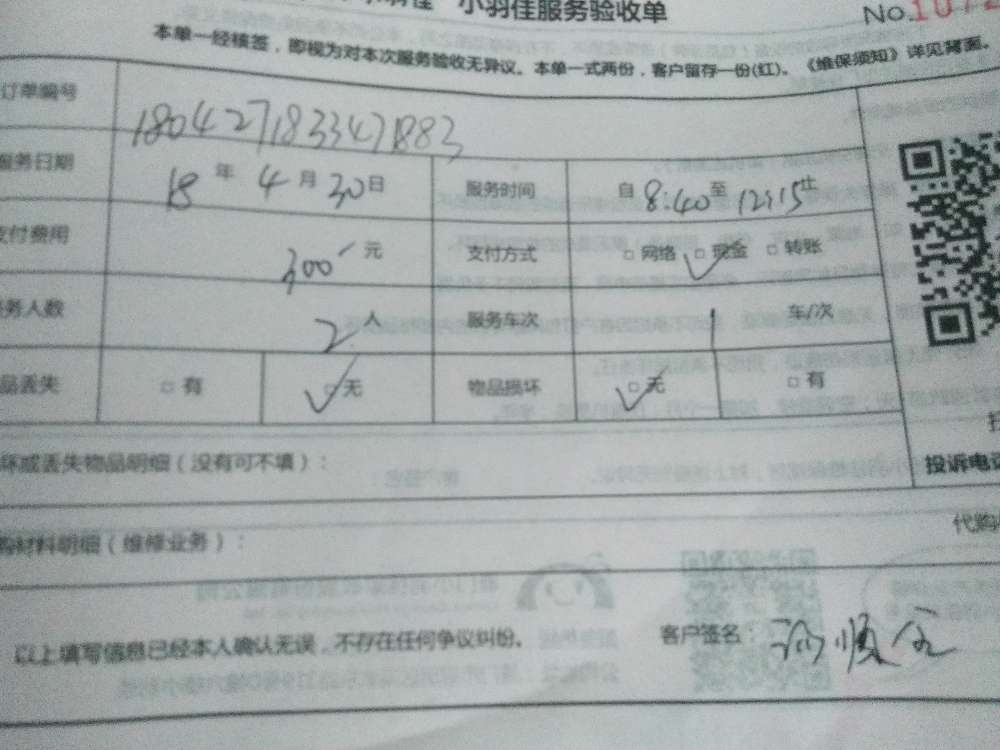 小羽佳服务验收单 No.1072
本单一经核签，即视为对本次服务验收无异议。本单一式两份，客户留存一份(红)。《维保须知》详见背面。
订单编号 180427183347883
服务日期 18 年 4 月 30 日 服务时间 自 8:40 至 12:15 止
支付费用 300 元 支付方式 □ 网络 □ 现金 □ 转账
务人数 2 人 服务车次 1 车/次
品丢失 □ 有 □ 无 物品损坏 □ 无 □ 有
坏或丢失物品明细（没有可不填）： 投诉电话
购材料明细（维修业务）： 代购
以上填写信息已经本人确认无误，不存在任何争议纠纷。 客户签名：